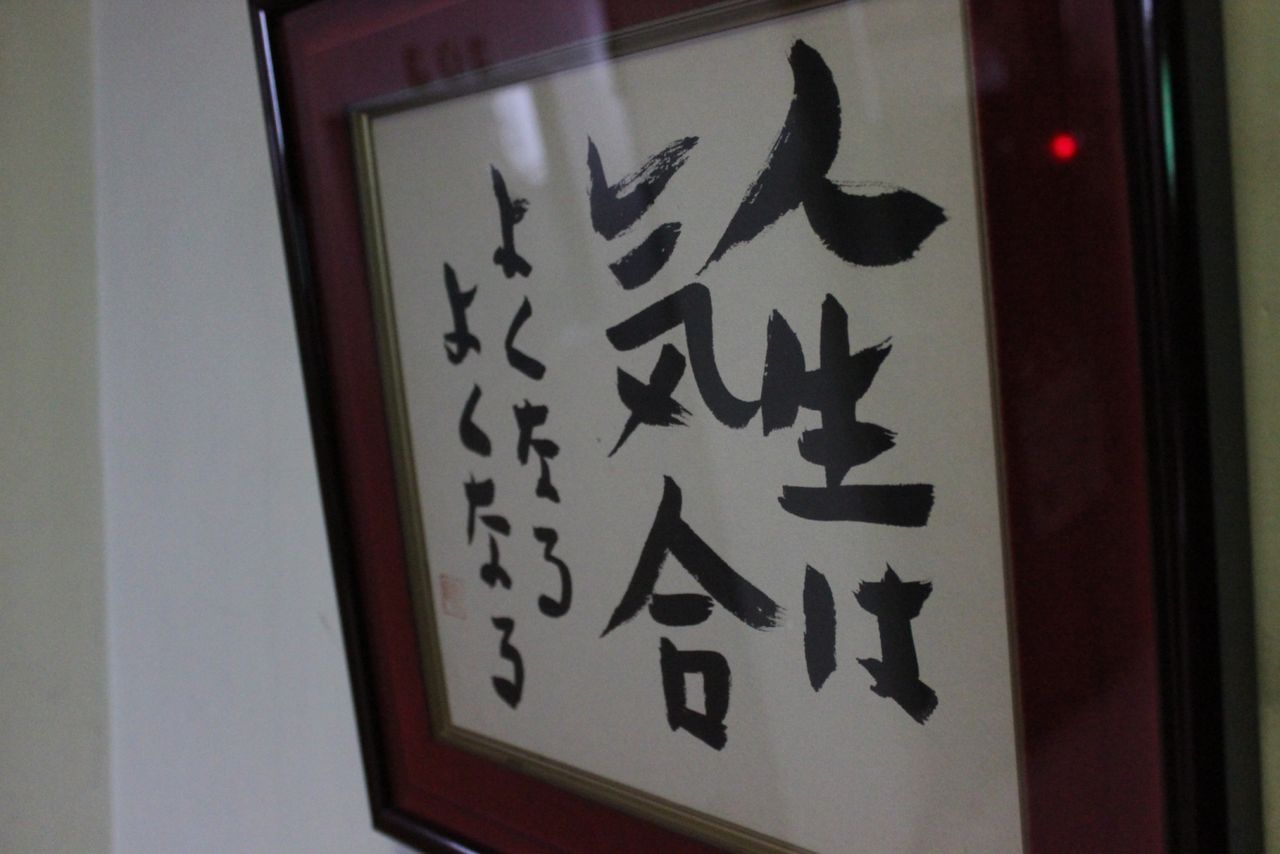 人生は
気合
よくなる
よくなる